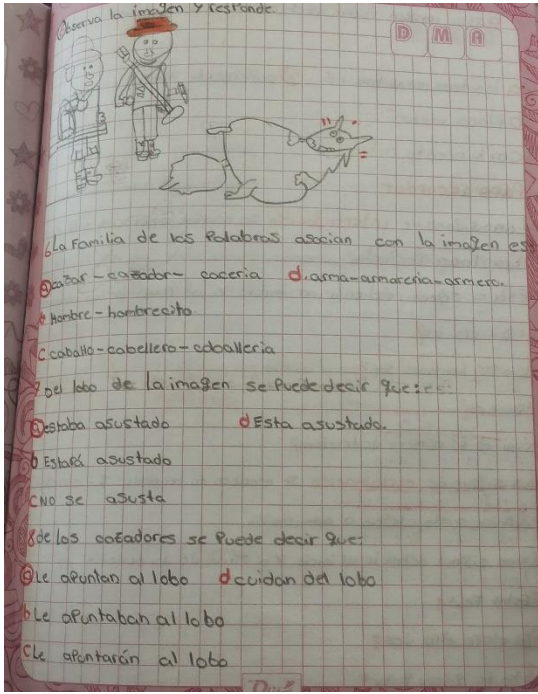 Observa la imagen y responde
D M A
6 La Familia de las Palabras asocian con la imagen es
a cazar - cazador - caceria d. arma - armareria - armero.
b Hombre - hombrecito
C caballo - cabellero - caballeria
7 Del lobo de la imagen se puede decir que:
a estaba asustado d Esta asustado.
b Estará asustado
C No se asusta
8 de los cazadores se Puede decir que:
a Le apuntan al lobo d cuidan del lobo
b Le apuntaban al lobo
C Le apentarán al lobo